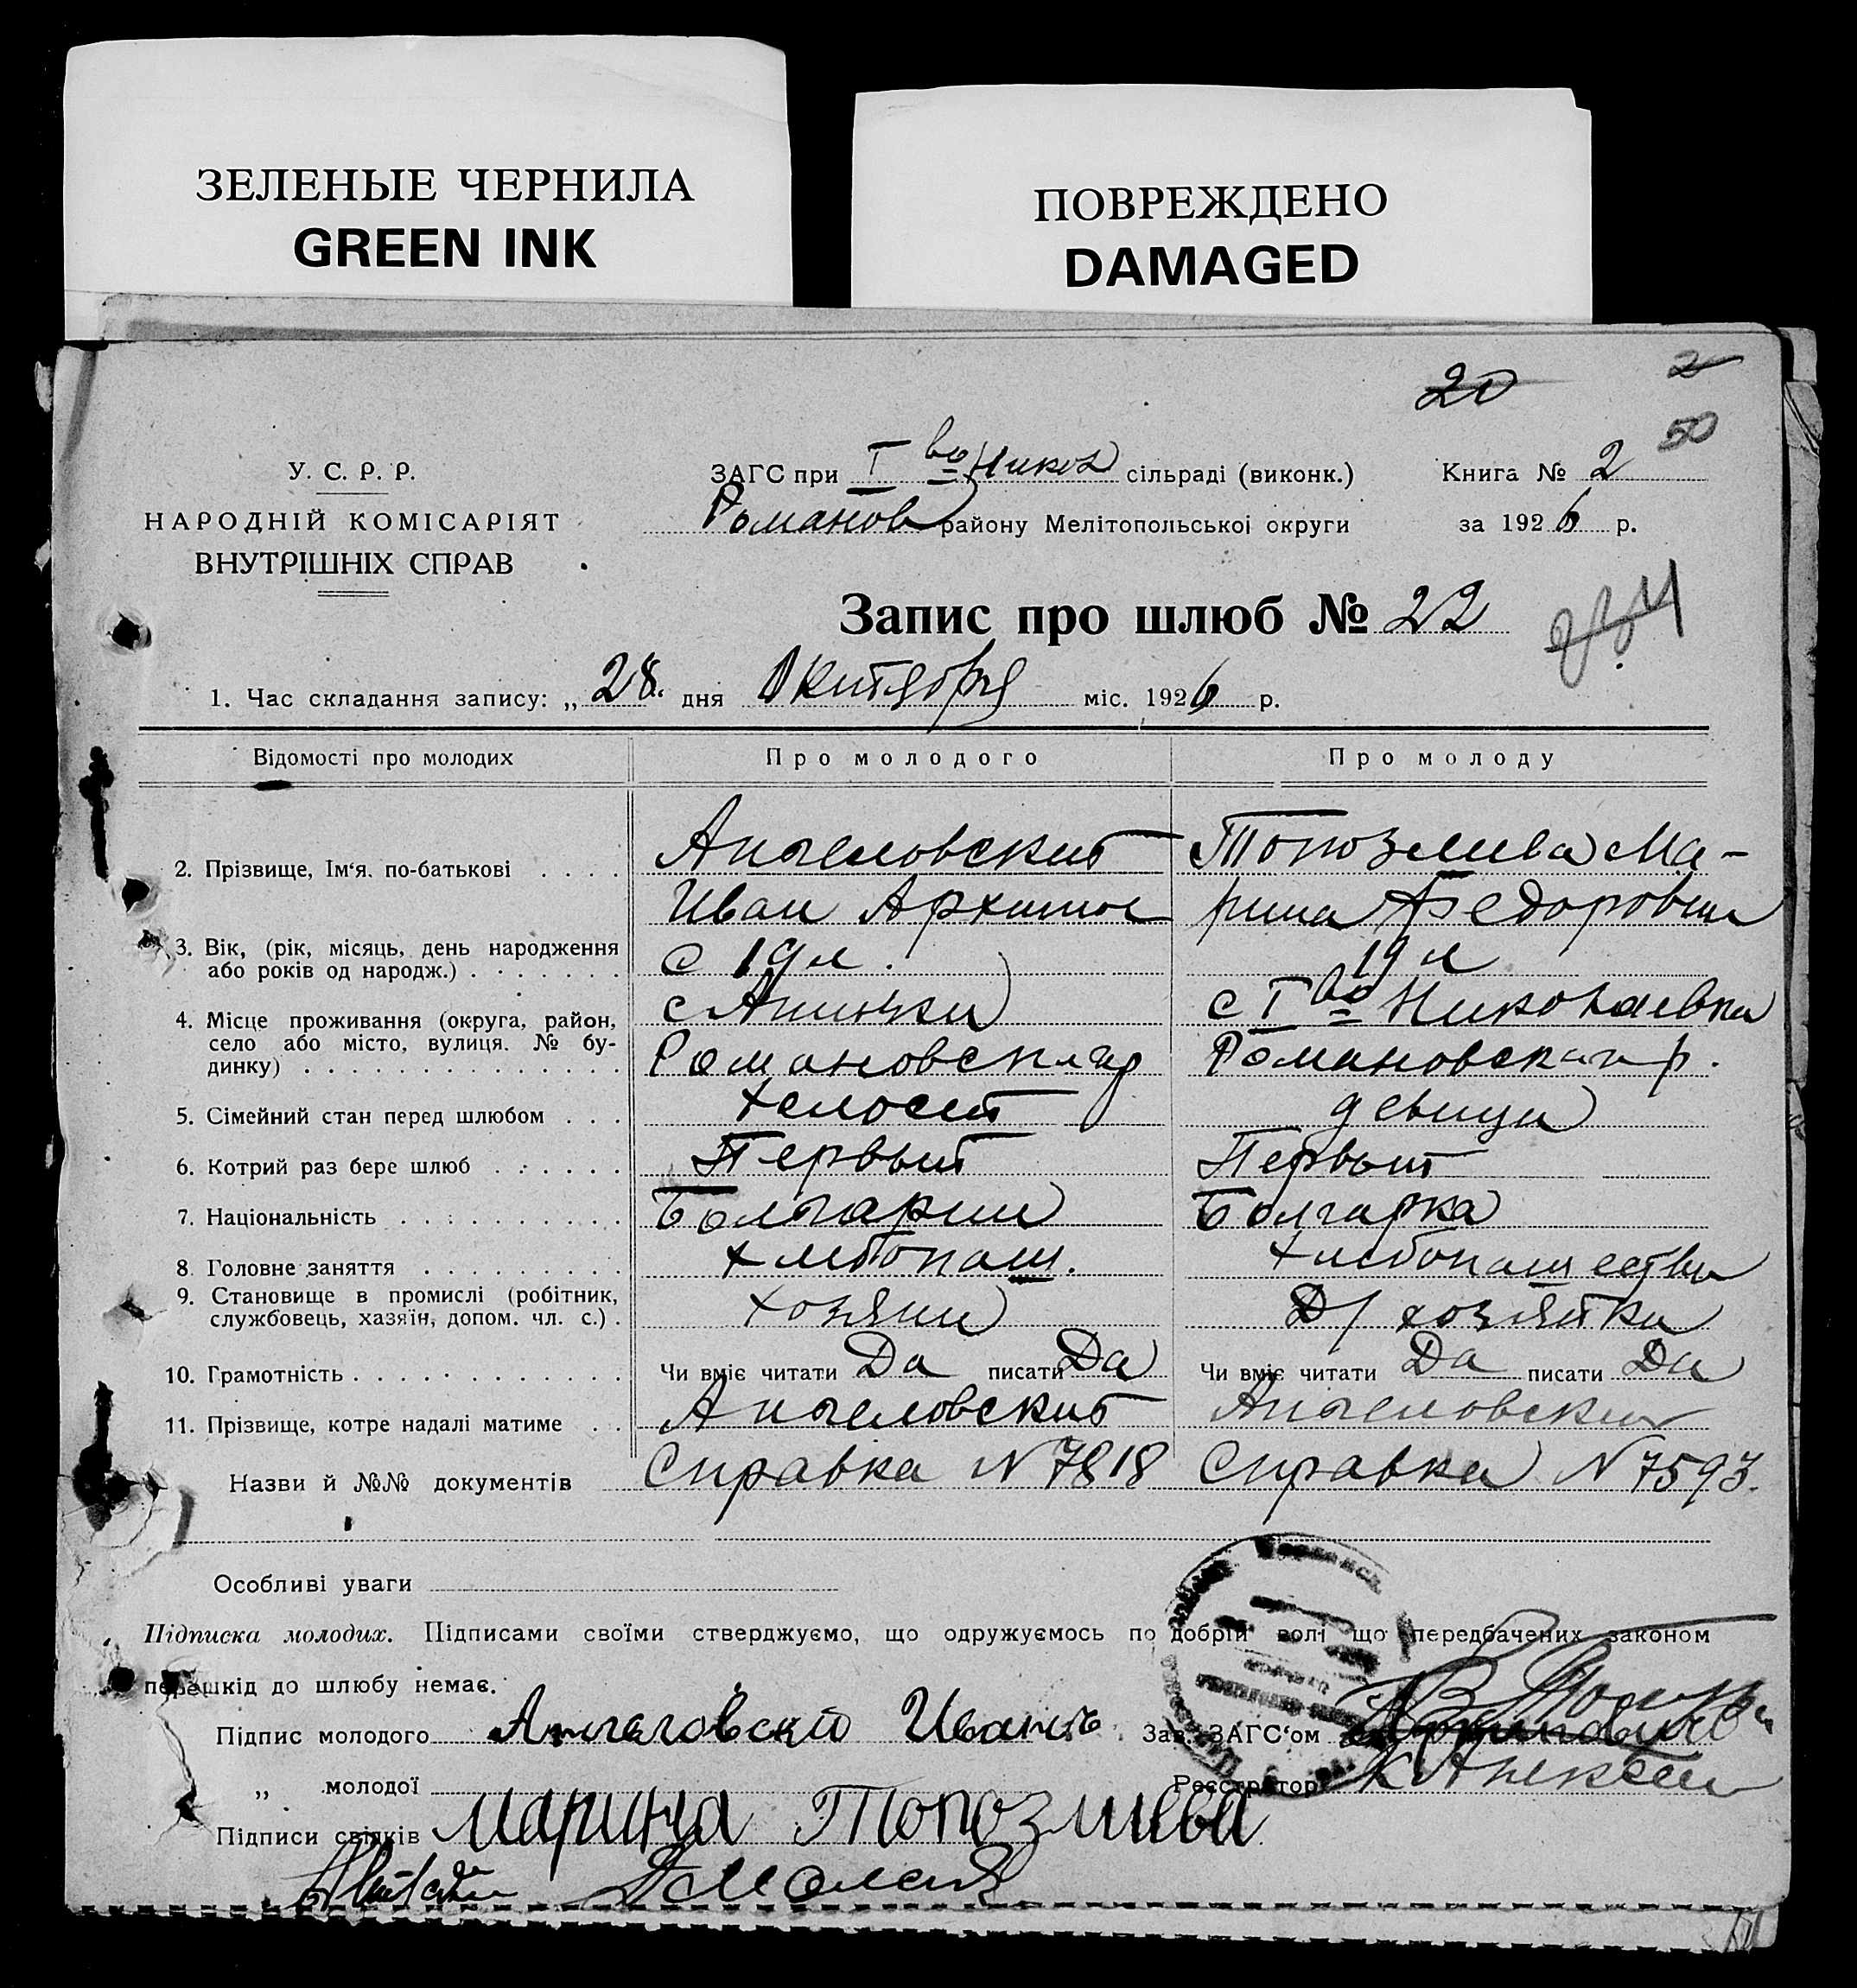 ЗЕЛЕНЫЕ ЧЕРНИЛА
GREEN INK
ПОВРЕЖДЕНО
DAMAGED
20
2
50
У. С. Р. Р.
НАРОДНІЙ КОМІСАРІЯТ
ВНУТРІШНІХ СПРАВ
ЗАГС при I во Никол сільраді (виконк.)
Романов району Мелітопольськоі округи
Книга № 2
за 1926 р.
Запис про шлюб № 22
1. Час складання запису: „ 28. дня Октября міс. 1926 р.
Відомості про молодих Про молодого Про молоду
2. Прізвище, Ім‘я. по-батькові . . . . Ангеловский Топозлиева Ма-
Иван Архипов рина Федоровна
3. Вік, (рік, місяць, день народження
або років од народж.) . . . . . . . с 19 л. 19 л
4. Місце проживання (округа, район,
село або місто, вулиця. № бу-
динку) . . . . . . . . . . . . . .
с Анновки с I во Николаевка
Романовск р Романовска р.
5. Сімейний стан перед шлюбом . . . холост девица
6. Котрий раз бере шлюб . . . . . . Первый Первый
7. Національність . . . . . . . . . . Болгарин Болгарка
8. Головне заняття . . . . . . . . . хлебопаш. хлебопашество
9. Становище в промислі (робітник,
службовець, хазяїн, допом. чл. с.) . хозяин Д/хозяйка
10. Грамотність . . . . . . . . . . . . Чи вміє читати Да писати Да Чи вміє читати Да писати Да
11. Прізвище, котре надалі матиме . . Ангеловский Ангеловская
Назви й №№ документів Справка N 7818 Справка N 7593.
Особливі уваги
Підписка молодих. Підписами своїми стверджуємо, що одружуємось по добрій волі що передбачених законом
перешкід до шлюбу немає.
Підпис молодого Ангеловский Иванъ Зав. ЗАГС‘ом
„ молодої Реєстратор
Підписи свідків Марина Топозлиева